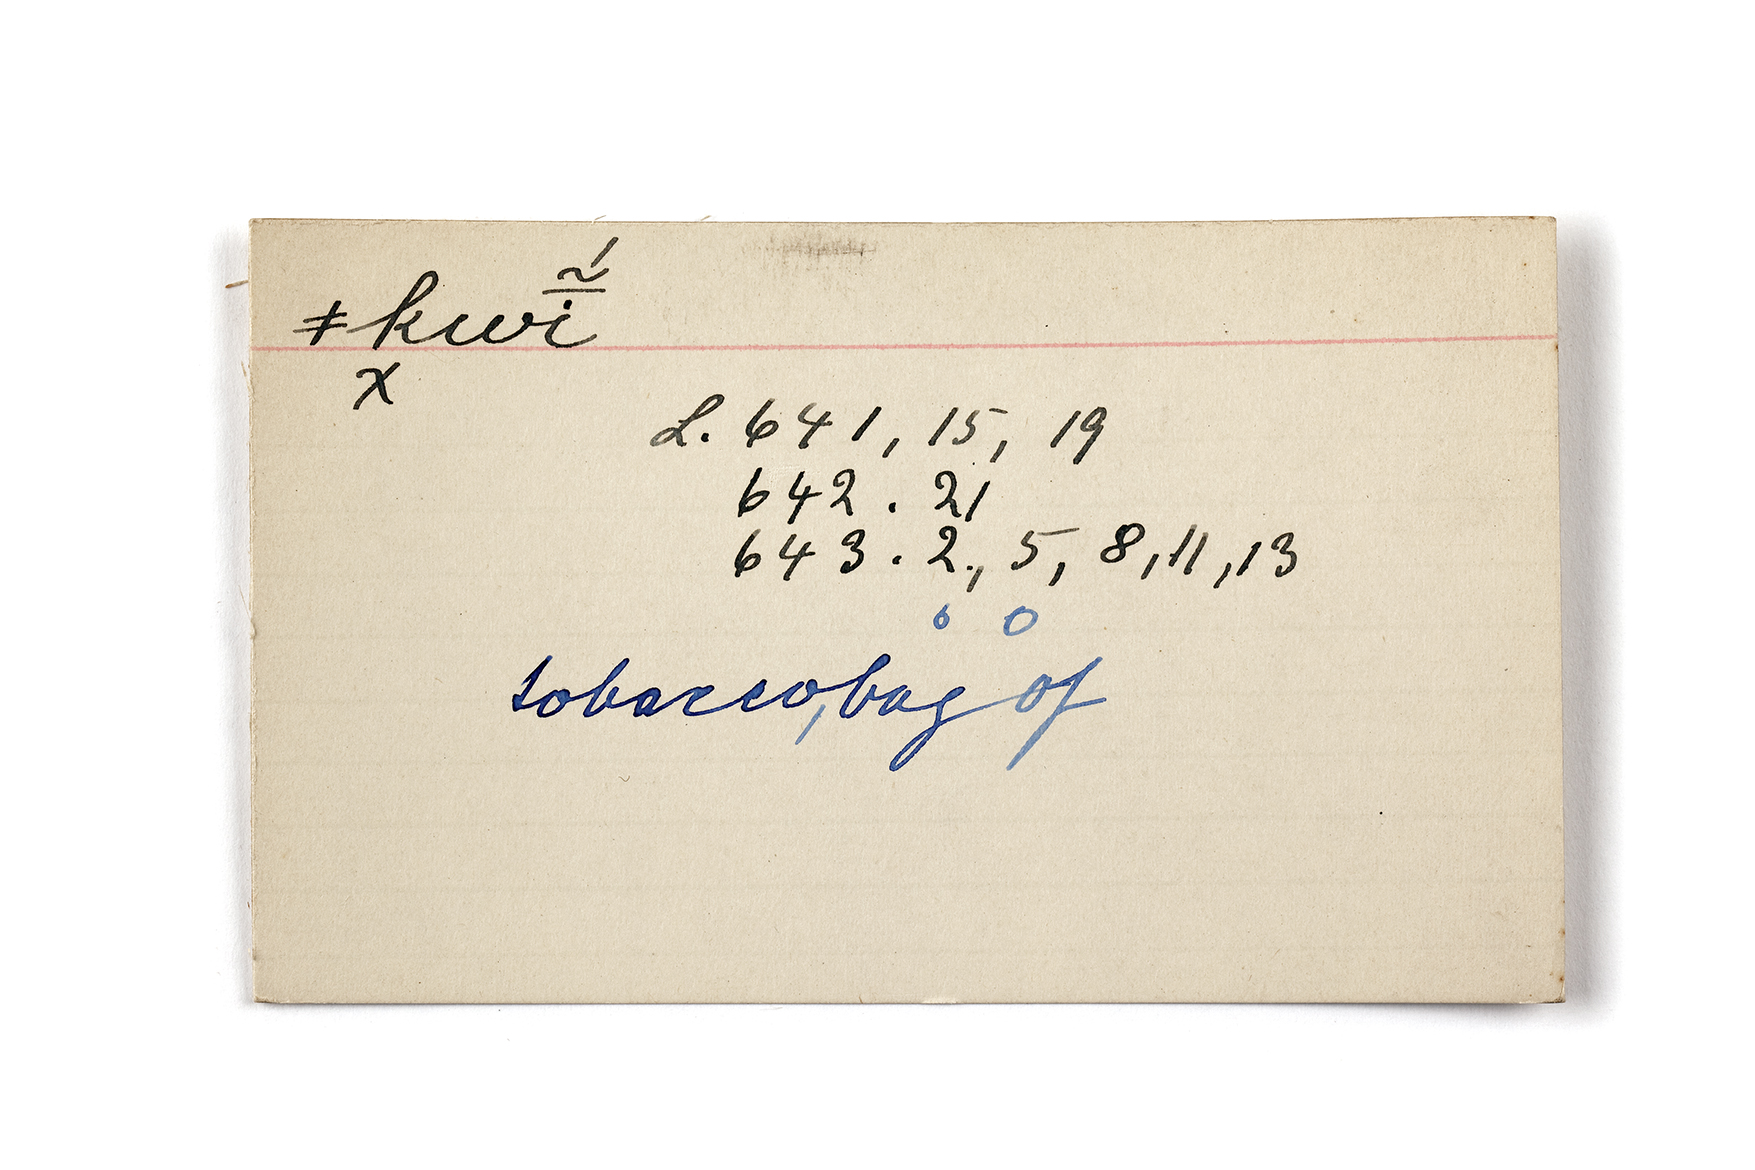 ǂkwĩ̱́
x
L. 641, 15, 19
642 . 21
643 . 2., 5, 8, 11, 13
o o
tobacco, bag of